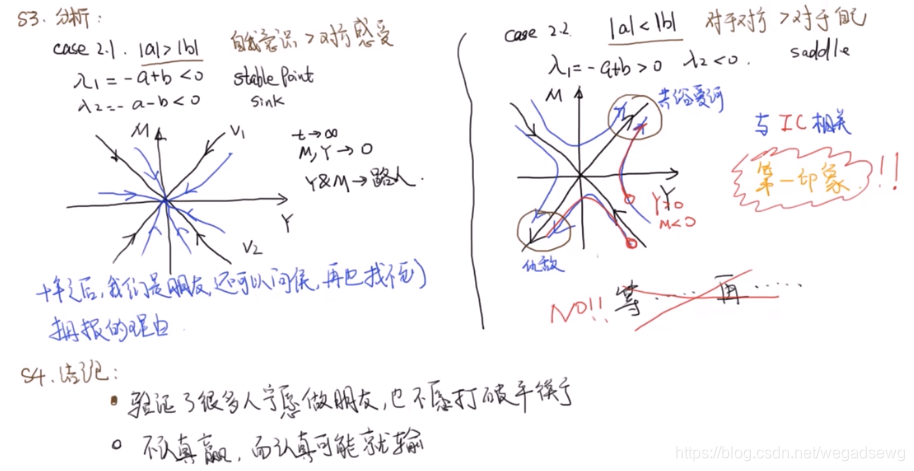 S3. 分析:
case 2.1. |a|>|b| 自我意识>对方感受
λ1=-a+b<0 stable Point
λ2=-a-b<0 sink
M V1
t→∞
M,Y→0
Y&M→路人.
Y
V2
十年之后,我们是朋友,还可以问候,再也找不到
拥抱的理由.
case 2.2. |a|<|b| 对于对方>对于自己
λ1=-a+b>0 λ2<0. saddle
M 共浴爱河
与IC相关
第一印象!!
Y
Y>0
M<0
仇敌
NO!! 等…… 再……
S4. 结论:
验证了很多人宁愿做朋友,也不愿打破平衡
不认真赢,而认真可能就输
https://blog.csdn.net/wegadsewg